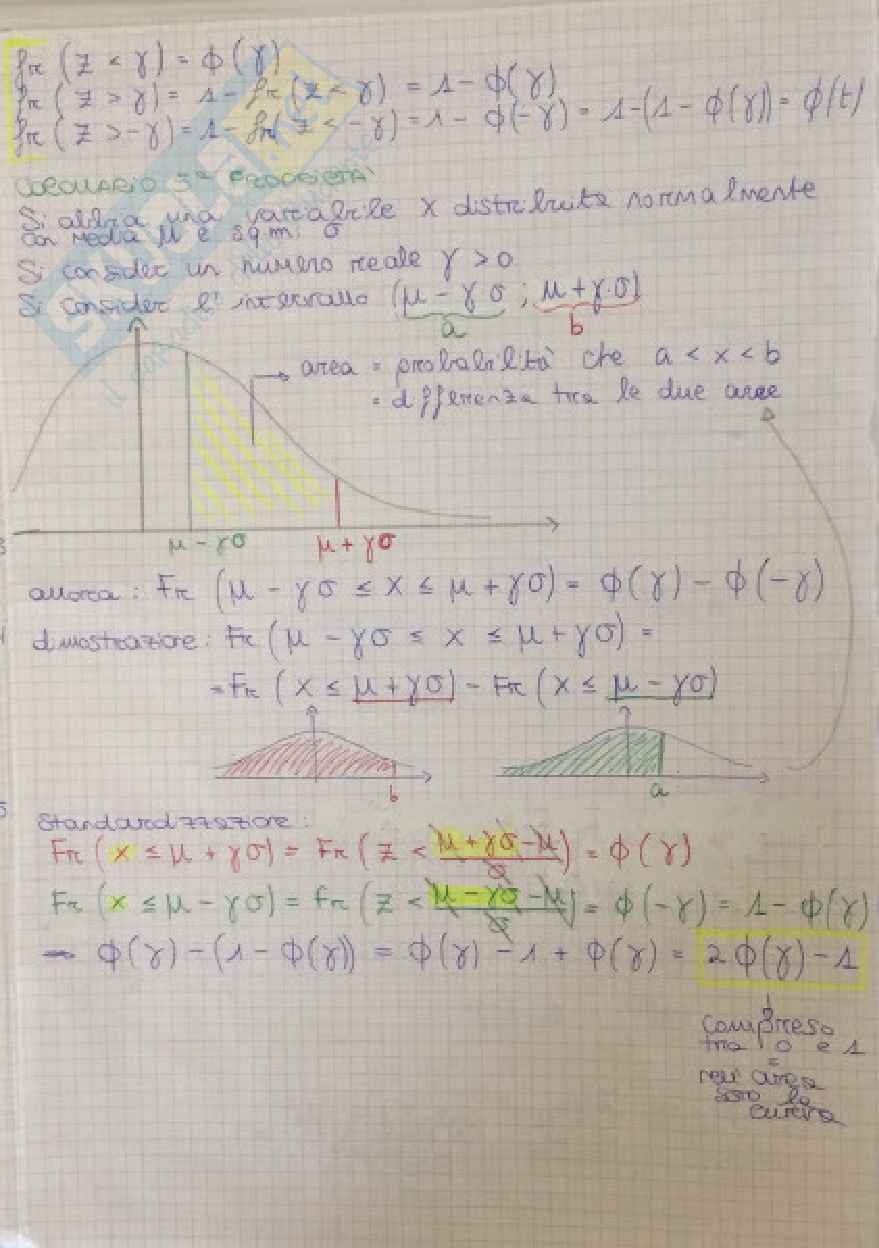 fr (z < γ) = ϕ(γ)
fr (z > γ) = 1 - fr (z < γ) = 1 - ϕ(γ)
fr (z > -γ) = 1 - fr (z < -γ) = 1 - ϕ(-γ) = 1-(1 - ϕ(γ)) = ϕ(t)
COROLLARIO 3ª PROPRIETÀ
Si abbia una variabile x distribuita normalmente
con media μ e sqm σ
Si consideri un numero reale γ > 0
Si consideri l'intervallo (μ - γσ ; μ + γ·σ)
a b
area = probabilità che a < x < b
= differenza tra le due aree
μ - γσ μ + γσ
allora: Fr (μ - γσ ≤ x ≤ μ + γσ) = ϕ(γ) - ϕ(-γ)
dimostrazione: Fr (μ - γσ ≤ x ≤ μ + γσ) =
= Fr (x ≤ μ + γσ) - Fr (x ≤ μ - γσ)
b a
Standardizzazione:
Fr (x ≤ μ + γσ) = Fr (z < μ + γσ - μ / σ) = ϕ(γ)
Fr (x ≤ μ - γσ) = fr (z < μ - γσ - μ / σ) = ϕ(-γ) = 1 - ϕ(γ)
→ ϕ(γ) - (1 - ϕ(γ)) = ϕ(γ) - 1 + ϕ(γ) = 2ϕ(γ) - 1
compreso
tra 0 e 1
=
nell'area
sotto la
curva